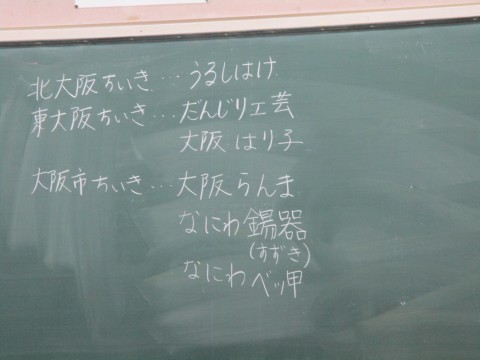 北大阪ちいき…うるしはけ
東大阪ちいき…だんじり工芸
大阪はり子
大阪市ちいき…大阪らんま
なにわ錫器
(すずき)
なにわベッ甲